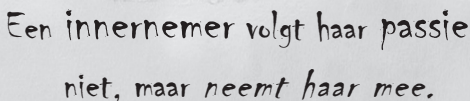 Een innernemer volgt haar passie
niet, maar neemt haar mee.